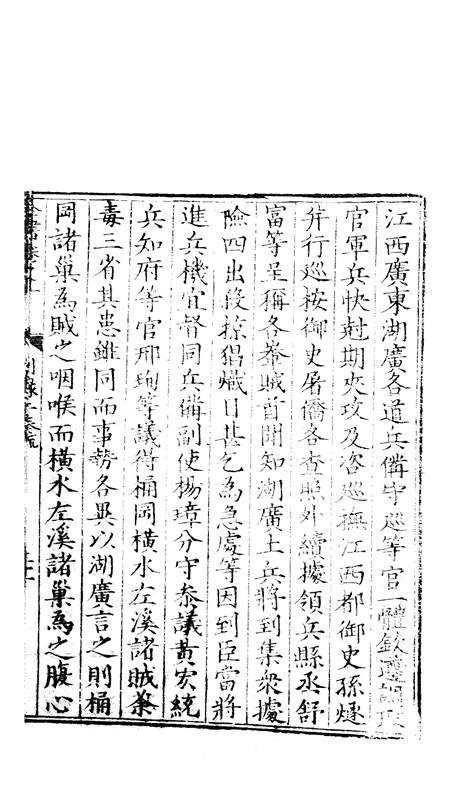 江西廣東湖廣各道兵備守巡等官一體欽遵調取
官軍兵快尅期夾攻及咨巡撫江西都御史孫燧
并行巡按御史屠僑各查照外續據領兵縣丞舒
富等呈稱各峯賊首聞知湖廣土兵將到集衆據
險四出殺掠猖熾日甚乞為急處等因到臣當將
進兵機宜督同兵備副使楊璋分守叅議黃宏統
兵知府等官邢珣等議得桶岡橫水左溪諸賊荼
毒三省其患雖同而事勢各異以湖廣言之則桶
岡諸巢為賊之咽喉而橫水左溪諸巢為之腹心